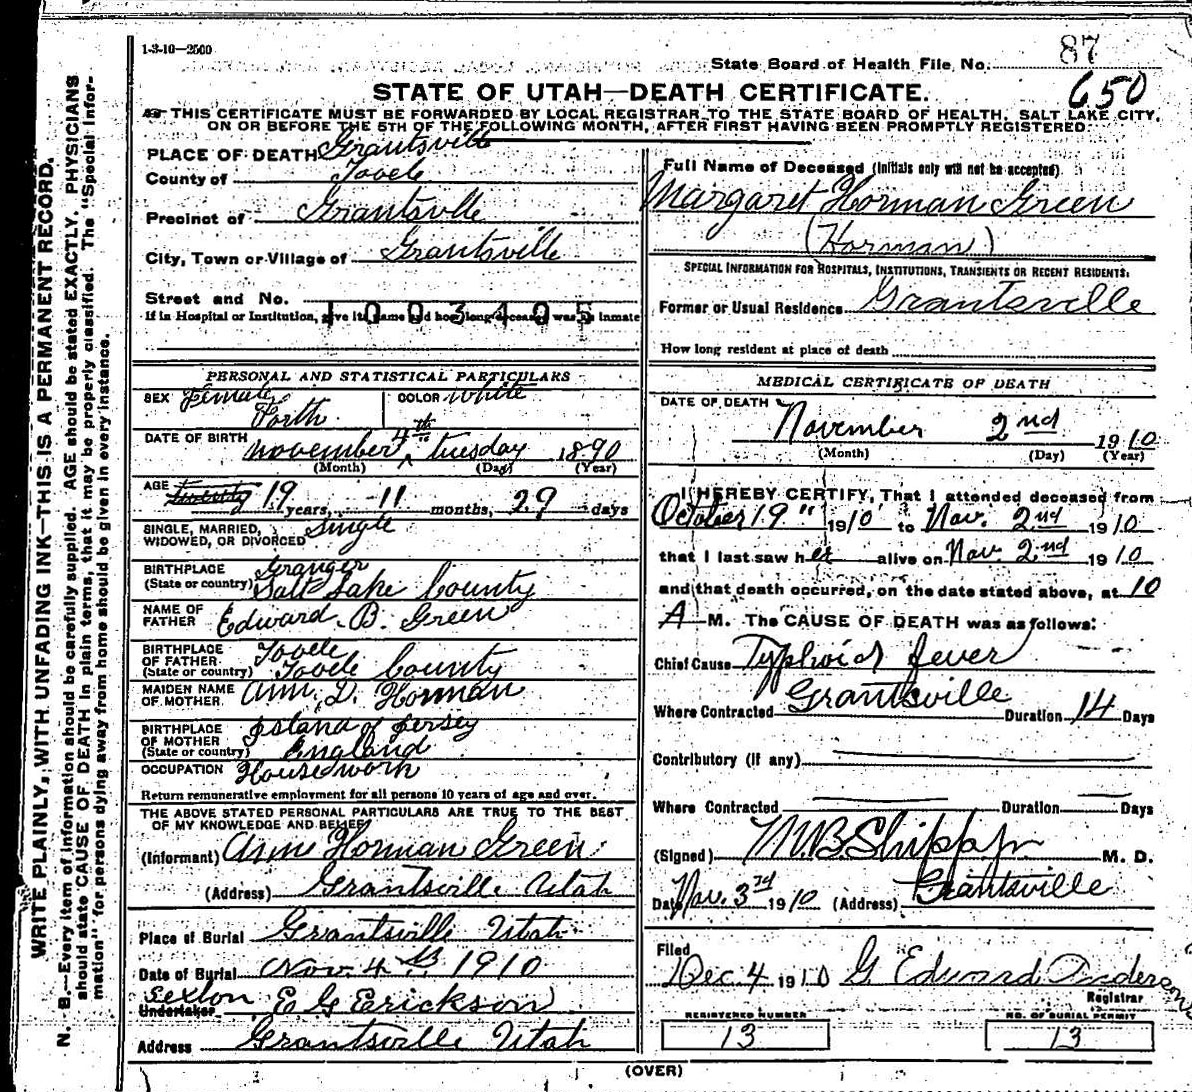 1-3-10—2500
State Board of Health File No. 87
650
STATE OF UTAH—DEATH CERTIFICATE.
THIS CERTIFICATE MUST BE FORWARDED BY LOCAL REGISTRAR TO THE STATE BOARD OF HEALTH, SALT LAKE CITY,
ON OR BEFORE THE 5TH OF THE FOLLOWING MONTH, AFTER FIRST HAVING BEEN PROMPTLY REGISTERED.
PLACE OF DEATH Grantsville
County of Tooele
Precinct of Grantsville
City, Town or Village of Grantsville
Street and No.
1003405
If in Hospital or Institution, give its name and how long deceased was an inmate
PERSONAL AND STATISTICAL PARTICULARS
SEX Female COLOR White
DATE OF BIRTH November 4th tuesday 1890
(Month) (Day) (Year)
AGE twenty 19 years, 11 months, 29 days
SINGLE, MARRIED,
WIDOWED, OR DIVORCED Single
BIRTHPLACE Granger
(State or country) Salt Lake County
NAME OF
FATHER Edward B. Green
BIRTHPLACE
OF FATHER Tooele
(State or country) Tooele County
MAIDEN NAME
OF MOTHER Ann. D. Horman
BIRTHPLACE
OF MOTHER Island of Jersey
(State or country) England
OCCUPATION Housework
Return remunerative employment for all persons 10 years of age and over.
THE ABOVE STATED PERSONAL PARTICULARS ARE TRUE TO THE BEST
OF MY KNOWLEDGE AND BELIEF
(Informant) Ann Horman Green
(Address) Grantsville Utah
Place of Burial Grantsville Utah
Date of Burial Nov. 4th 1910
Sexton
Undertaker E G Erickson
Address Grantsville Utah
Full Name of Deceased (Initials only will not be accepted)
Margaret Horman Green
(Horman)
SPECIAL INFORMATION FOR HOSPITALS, INSTITUTIONS, TRANSIENTS OR RECENT RESIDENTS:
Former or Usual Residence Grantsville
How long resident at place of death
MEDICAL CERTIFICATE OF DEATH
DATE OF DEATH
November 2nd 1910
(Month) (Day) (Year)
I HEREBY CERTIFY, That I attended deceased from
October 19" 1910 to Nov. 2nd 1910
that I last saw her alive on Nov. 2nd 1910
and that death occurred, on the date stated above, at 10
A M. The CAUSE OF DEATH was as follows:
Chief Cause Typhoid fever
Where Contracted Grantsville Duration 14 Days
Contributory (if any)
Where Contracted Duration Days
(Signed) M. D.
Date Nov. 3rd 1910 (Address) Grantsville
Filed
Dec 4 1910 G. Edward Anderson
Registrar
REGISTERED NUMBER
13
NO. OF BURIAL PERMIT
13
(OVER)
WRITE PLAINLY, WITH UNFADING INK—THIS IS A PERMANENT RECORD.
N. B.—Every item of information should be carefully supplied. AGE should be stated EXACTLY. PHYSICIANS
should state CAUSE OF DEATH in plain terms, that it may be properly classified. The "Special Infor-
mation" for persons dying away from home should be given in every instance.